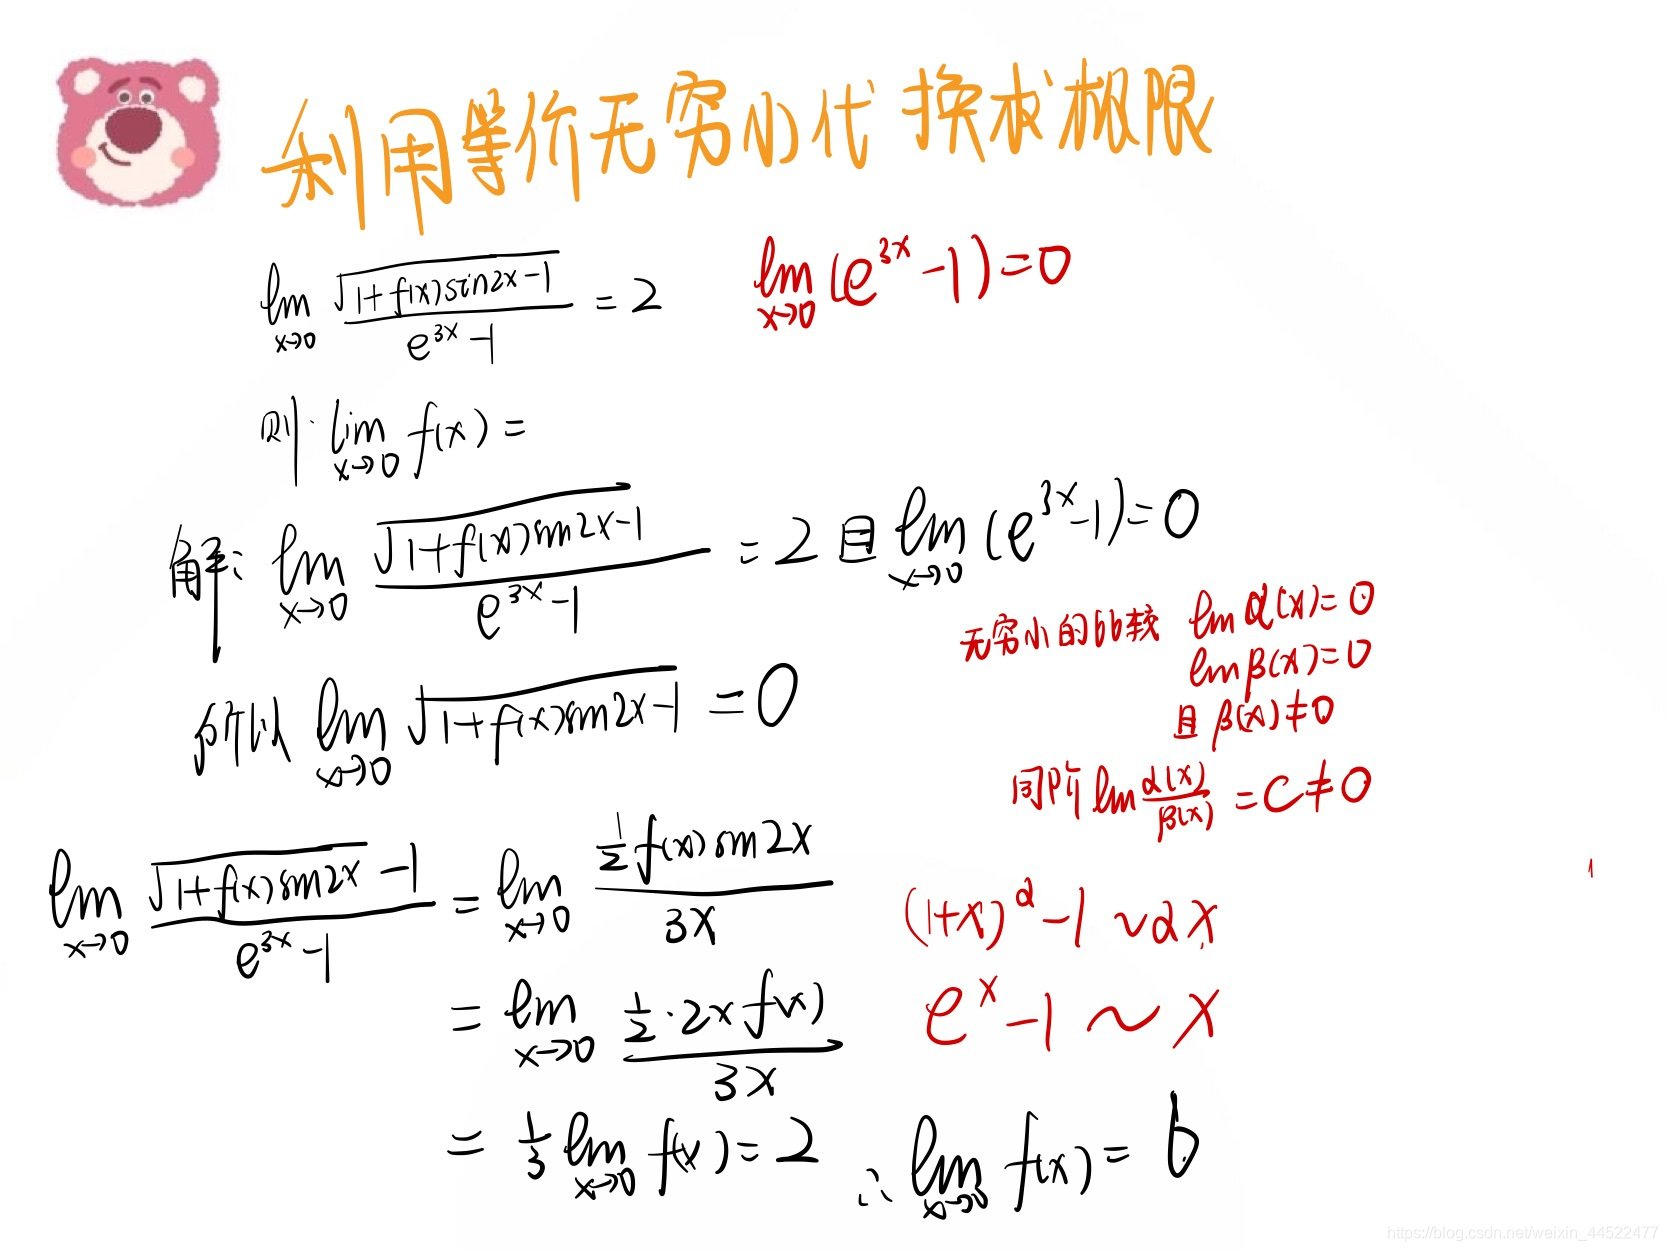 利用等价无穷小代换求极限
lim_{x→0} \frac{\sqrt{1+f(x)sin2x-1}}{e^{3x}-1} = 2
lim_{x→0} (e^{3x}-1)=0
则: lim_{x→0} f(x) =
解: lim_{x→0} \frac{\sqrt{1+f(x)sin2x-1}}{e^{3x}-1} = 2 且 lim_{x→0} (e^{3x}-1)=0
无穷小的比较 lim α(x)=0
lim β(x)=0
且 β(x)≠0
所以 lim_{x→0} \sqrt{1+f(x)sin2x-1} = 0
同阶 lim \frac{α(x)}{β(x)} = C≠0
lim_{x→0} \frac{\sqrt{1+f(x)sin2x}-1}{e^{3x}-1} = lim_{x→0} \frac{\frac{1}{2}f(x)sin2x}{3x}
(1+x)^α-1 ~ αx
= lim_{x→0} \frac{\frac{1}{2}·2xf(x)}{3x}
e^x-1 ~ x
= \frac{1}{3} lim_{x→0} f(x) = 2 ∴ lim_{x→0} f(x) = 6
https://blog.csdn.net/weixin_44522477